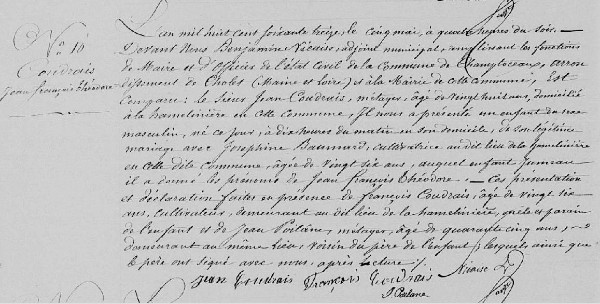 N° 16
Coudrais
Jean françois théodore
L'an mil huit cent soixante treize, le cinq mai, à quatre heures du soir.
Devant Nous Benjamin Nicaise, adjoint municipal, remplissant les fonctions
de Maire et d'Officier de l'état civil de la Commune de Champtoceaux, arron
dissement de Cholet (Maine et Loire) et à la Mairie de cette Commune, Est
Comparu: le sieur Jean Coudrais, métayer, âgé de vingt huit ans, domicilié
à la hamelinière en cette Commune, Il nous a présenté un enfant du sexe
masculin, né ce jour, à dix heures du matin en son domicile, de son légitime
mariage avec Josephine Baumard, cultivatrice au dit lieu de la hamelinière
en cette dite Commune, âgée de vingt six ans, auquel enfant Jumeau
il a donné les prénoms de Jean françois théodore — Ces présentation
et déclaration faites en présence de françois Coudrais, âgé de vingt six
ans, cultivateur, demeurant au dit lieu de la hamelinière, oncle et parain
de l'enfant et de Jean Poilâne, métayer, âgé de quarante cinq ans,
demeurant au même lieu, voisin du père de l'enfant; lesquels ainsi que
le père ont signé avec nous, après lecture.
Jean Coudrais François Coudrais Nicaise
J Poilane